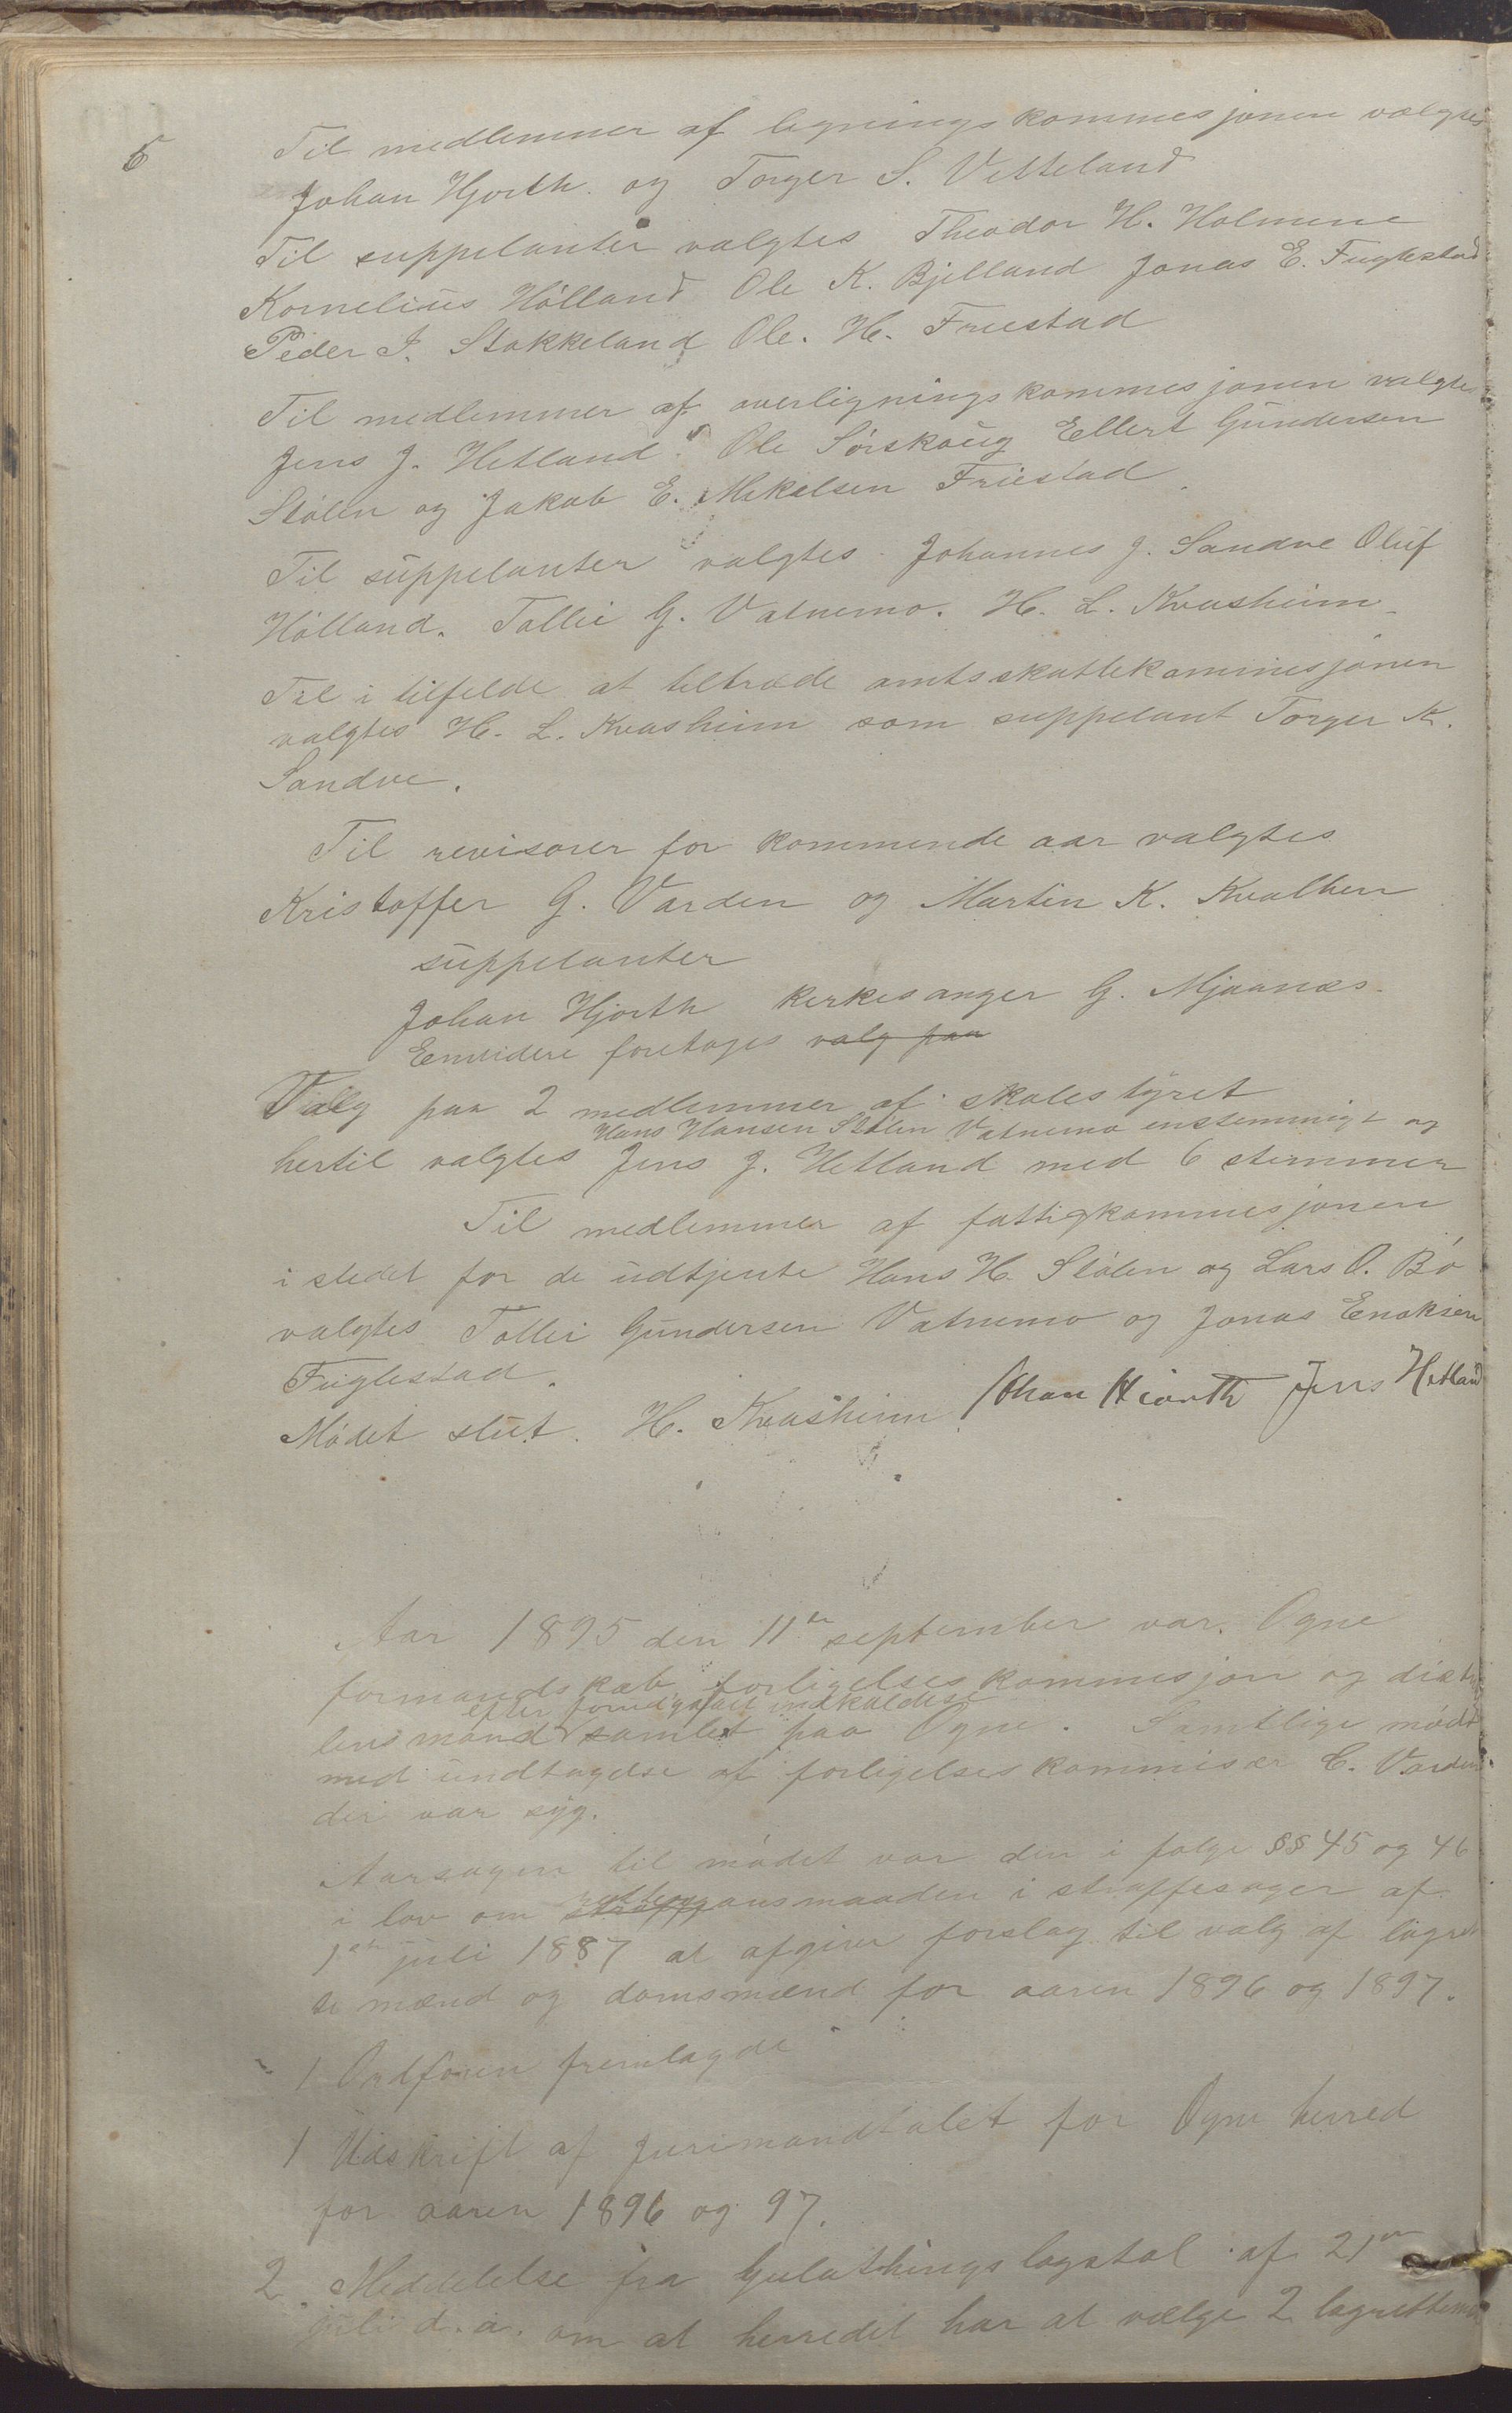 5
Til medlemmer af ligningskommesjonen valgtes
Johan Hjorth og Torger S. Vetteland
Til suppelanter valgtes Theodor H. Holmene
Kornelius Hölland Ole K. Bjelland Jonas E. Fuglestad
Peder I. Stokkeland Ole. H. Friestad
Til medlemmer af overligningskommesjonen valgtes
Jens J. Hetland. Ole Sörskoug Ellert Gundersen
Stölen og Jakob E. Mikalsen Friestad.
Til suppelanter valgtes Johannes J. Sandve Oluf
Hölland. Tollei G. Vatnemo. H. L. Kvasheim
Til i tilfelde at tiltræde amtsskattekommiesjonen
valgtes H. L. Kvasheim som suppelant Torger K.
Sandve.
Til revisorer for kommende aar valgtes
Kristoffer G. Varden og Martin K. Kvalben
suppelanter
Johan Hjorth kirkesanger G. Mjaanes
Ennvidere foretoges valg paa
Valg paa 2 medlemmer af skolestyret
Hans Hansen Stölen Vatnemo enstemmigt og
hertil valgtes Jens J. Hetland med 6 stemmer
Til medlemmer af fattigkommesjonen
i stedet for de udtjente Hans H. Stölen og Lars O. Bö
valgtes Tollei Gundersen Vatnemo og Jonas Enoksen
Fuglestad.
Mödet slut. H. Kvasheim Johan Hiorth Jens Hetland
Aar 1895 den 11te september var Ogne
formandskab forligelseskommesjon og distr
efter forudgaaet indkaldelse
lensmand samlet paa Ogne. Samtlige mödt
med undtagelse af forligelseskommisær C. Varden
der var syg.
Aarsagen til mödet var den i fölge §§ 45 og 46
i lov om rettergangsmaaden i straffesager af
1ste juli 1887 at afgive forslag til valg af lagret
te mænd og domsmænd for aaren 1896 og 1897.
1 Ordfören fremlagde
1 Udskrift af Jurimandtalet for Ogne herred
for aaren 1896 og 97.
2. Meddelelse fra Gulathings lagstol af 21de
juli d. a. om at herredet har at vælge 2 lagrettemæ